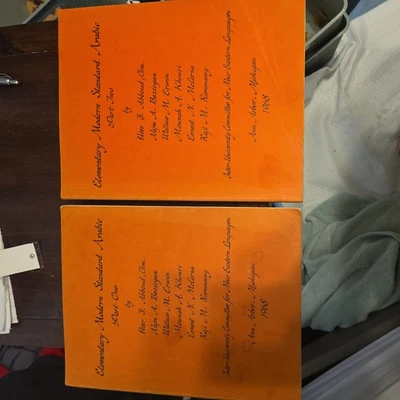 Elementary Modern Standard Arabic
Part Two
by
Peter F. Abboud, Chm.
Aleya A. Bezirgan
Wallace M. Erwin
Mounah A. Khouri
Ernest N. McCarus
Raji M. Rammuny
Inter-University Committee for Near Eastern Languages
Ann Arbor, Michigan
1968
Elementary Modern Standard Arabic
Part One
by
Peter F. Abboud, Chm.
Wallace M. Erwin
Mounah A. Khouri
Ernest N. McCarus
Raji M. Rammuny
Inter-University Committee for Near Eastern Languages
Ann Arbor, Michigan
1968